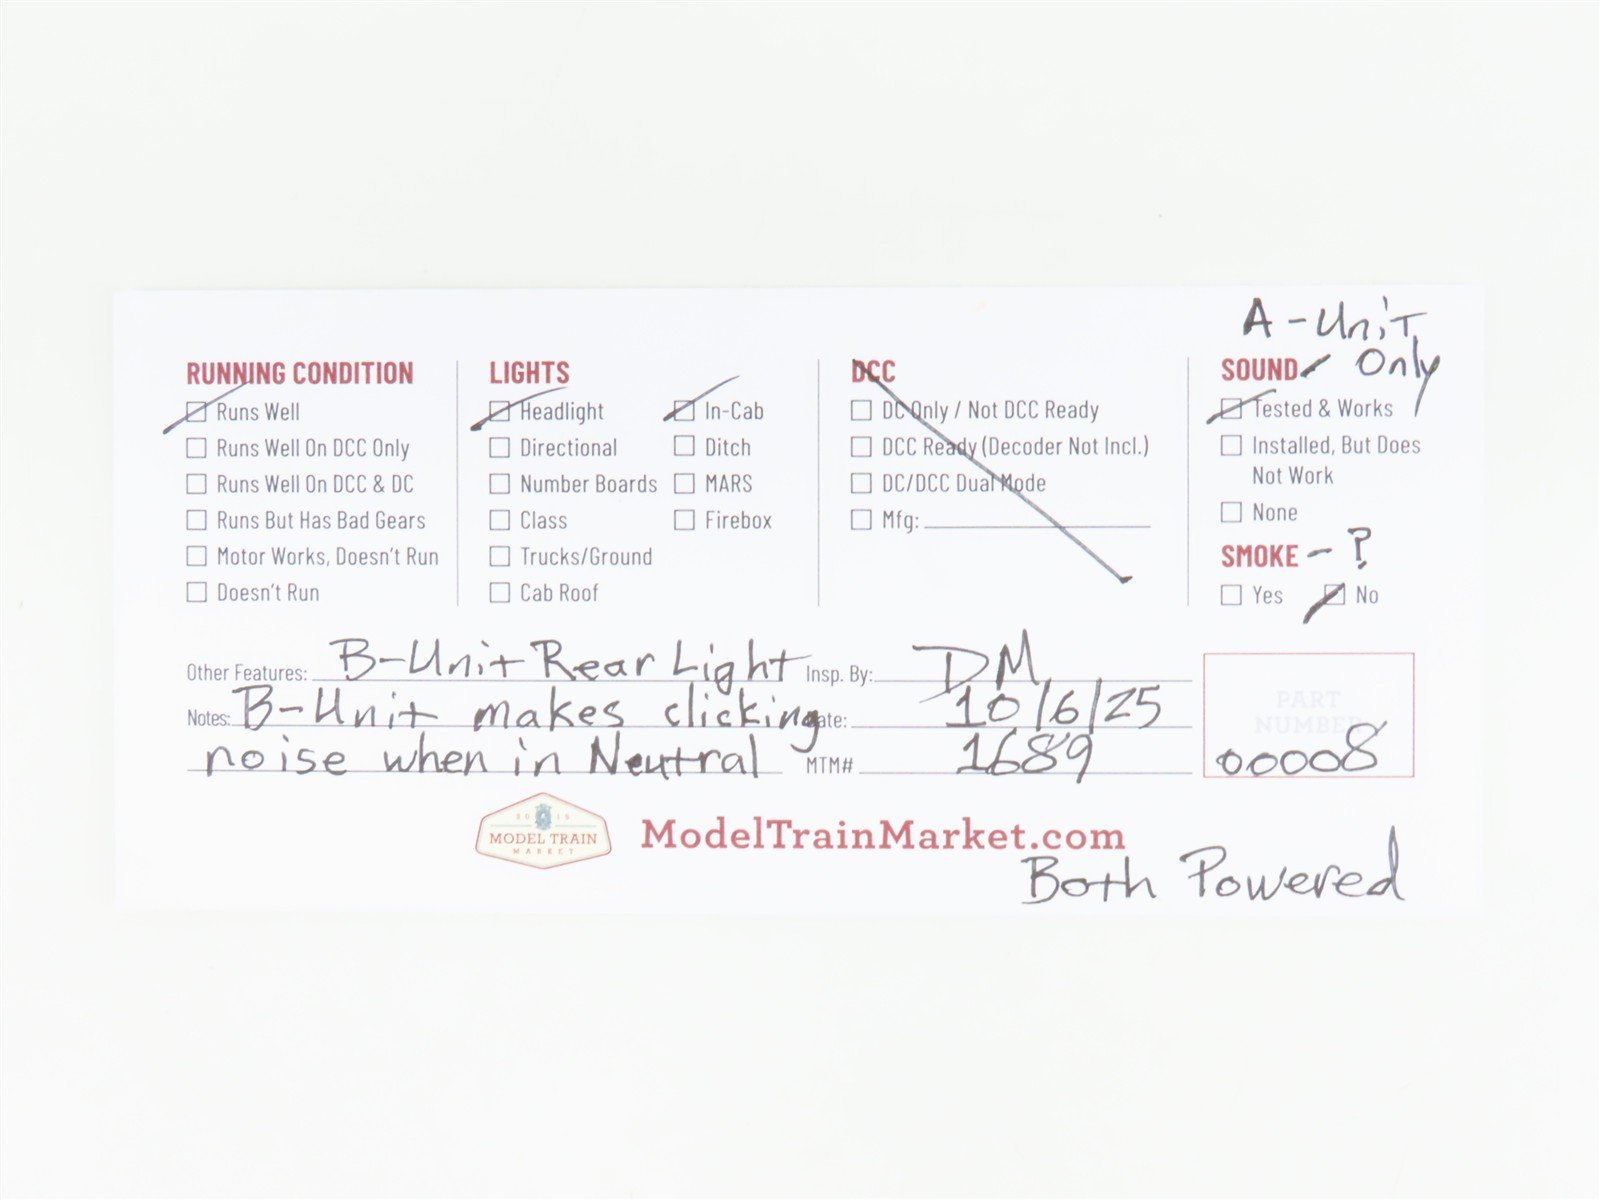 A-Unit
Only
RUNNING CONDITION
Runs Well
Runs Well On DCC Only
Runs Well On DCC & DC
Runs But Has Bad Gears
Motor Works, Doesn't Run
Doesn't Run
LIGHTS
Headlight
Directional
Number Boards
Class
Trucks/Ground
Cab Roof
In-Cab
Ditch
MARS
Firebox
DCC
DC Only / Not DCC Ready
DCC Ready (Decoder Not Incl.)
DC/DCC Dual Mode
Mfg:
SOUND
Tested & Works
Installed, But Does
Not Work
None
SMOKE - ?
Yes No
Other Features: B-Unit Rear Light
Notes: B-Unit makes clicking
noise when in Neutral
Insp. By: DM
ate: 10/6/25
MTM# 1689
PART
NUMBER
00008
2015
MODEL TRAIN
MARKET
ModelTrainMarket.com
Both Powered